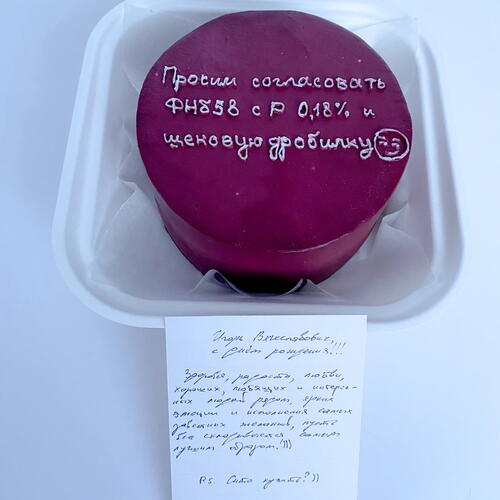 Просим согласовать
ФН858 с Р 0,18% и
щековую дробилку
Игорь Вячеславович,
с Днём рождения!!!
Здоровья, радости, любви,
хороших, любящих и интерес-
ных людей рядом, ярких
эмоций и исполнения самых
заветных желаний, пусть
все складывается самым
лучшим образом!)))
P.S. Сито нужно?))